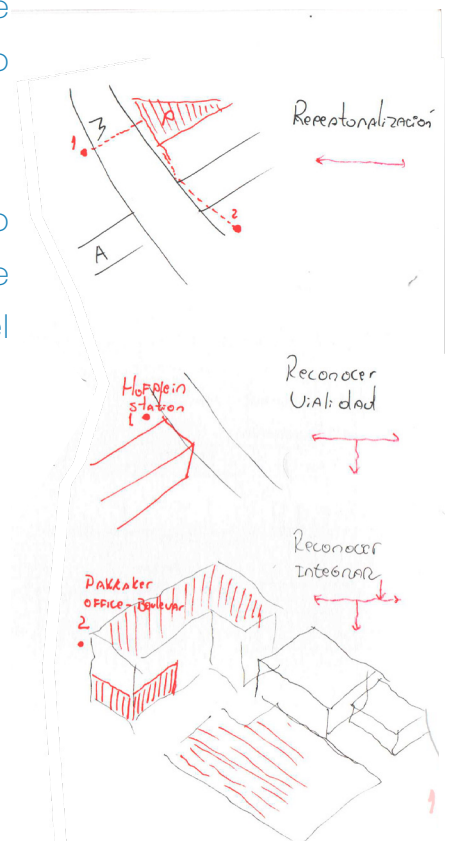 e
o
o
e
el
3
R
1
2
A
Repeatonalización
Hofplein
station
1
Reconocer
Vialidad
Reconocer
Integrar
Pakkaker
office - Boulevar
2
1